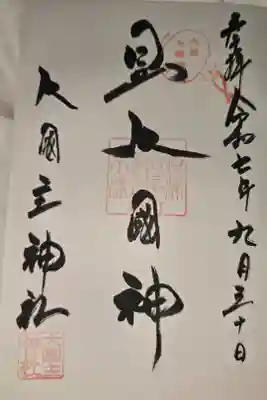 奉拝 令和七年九月三十日
日出大國神
大國主神社